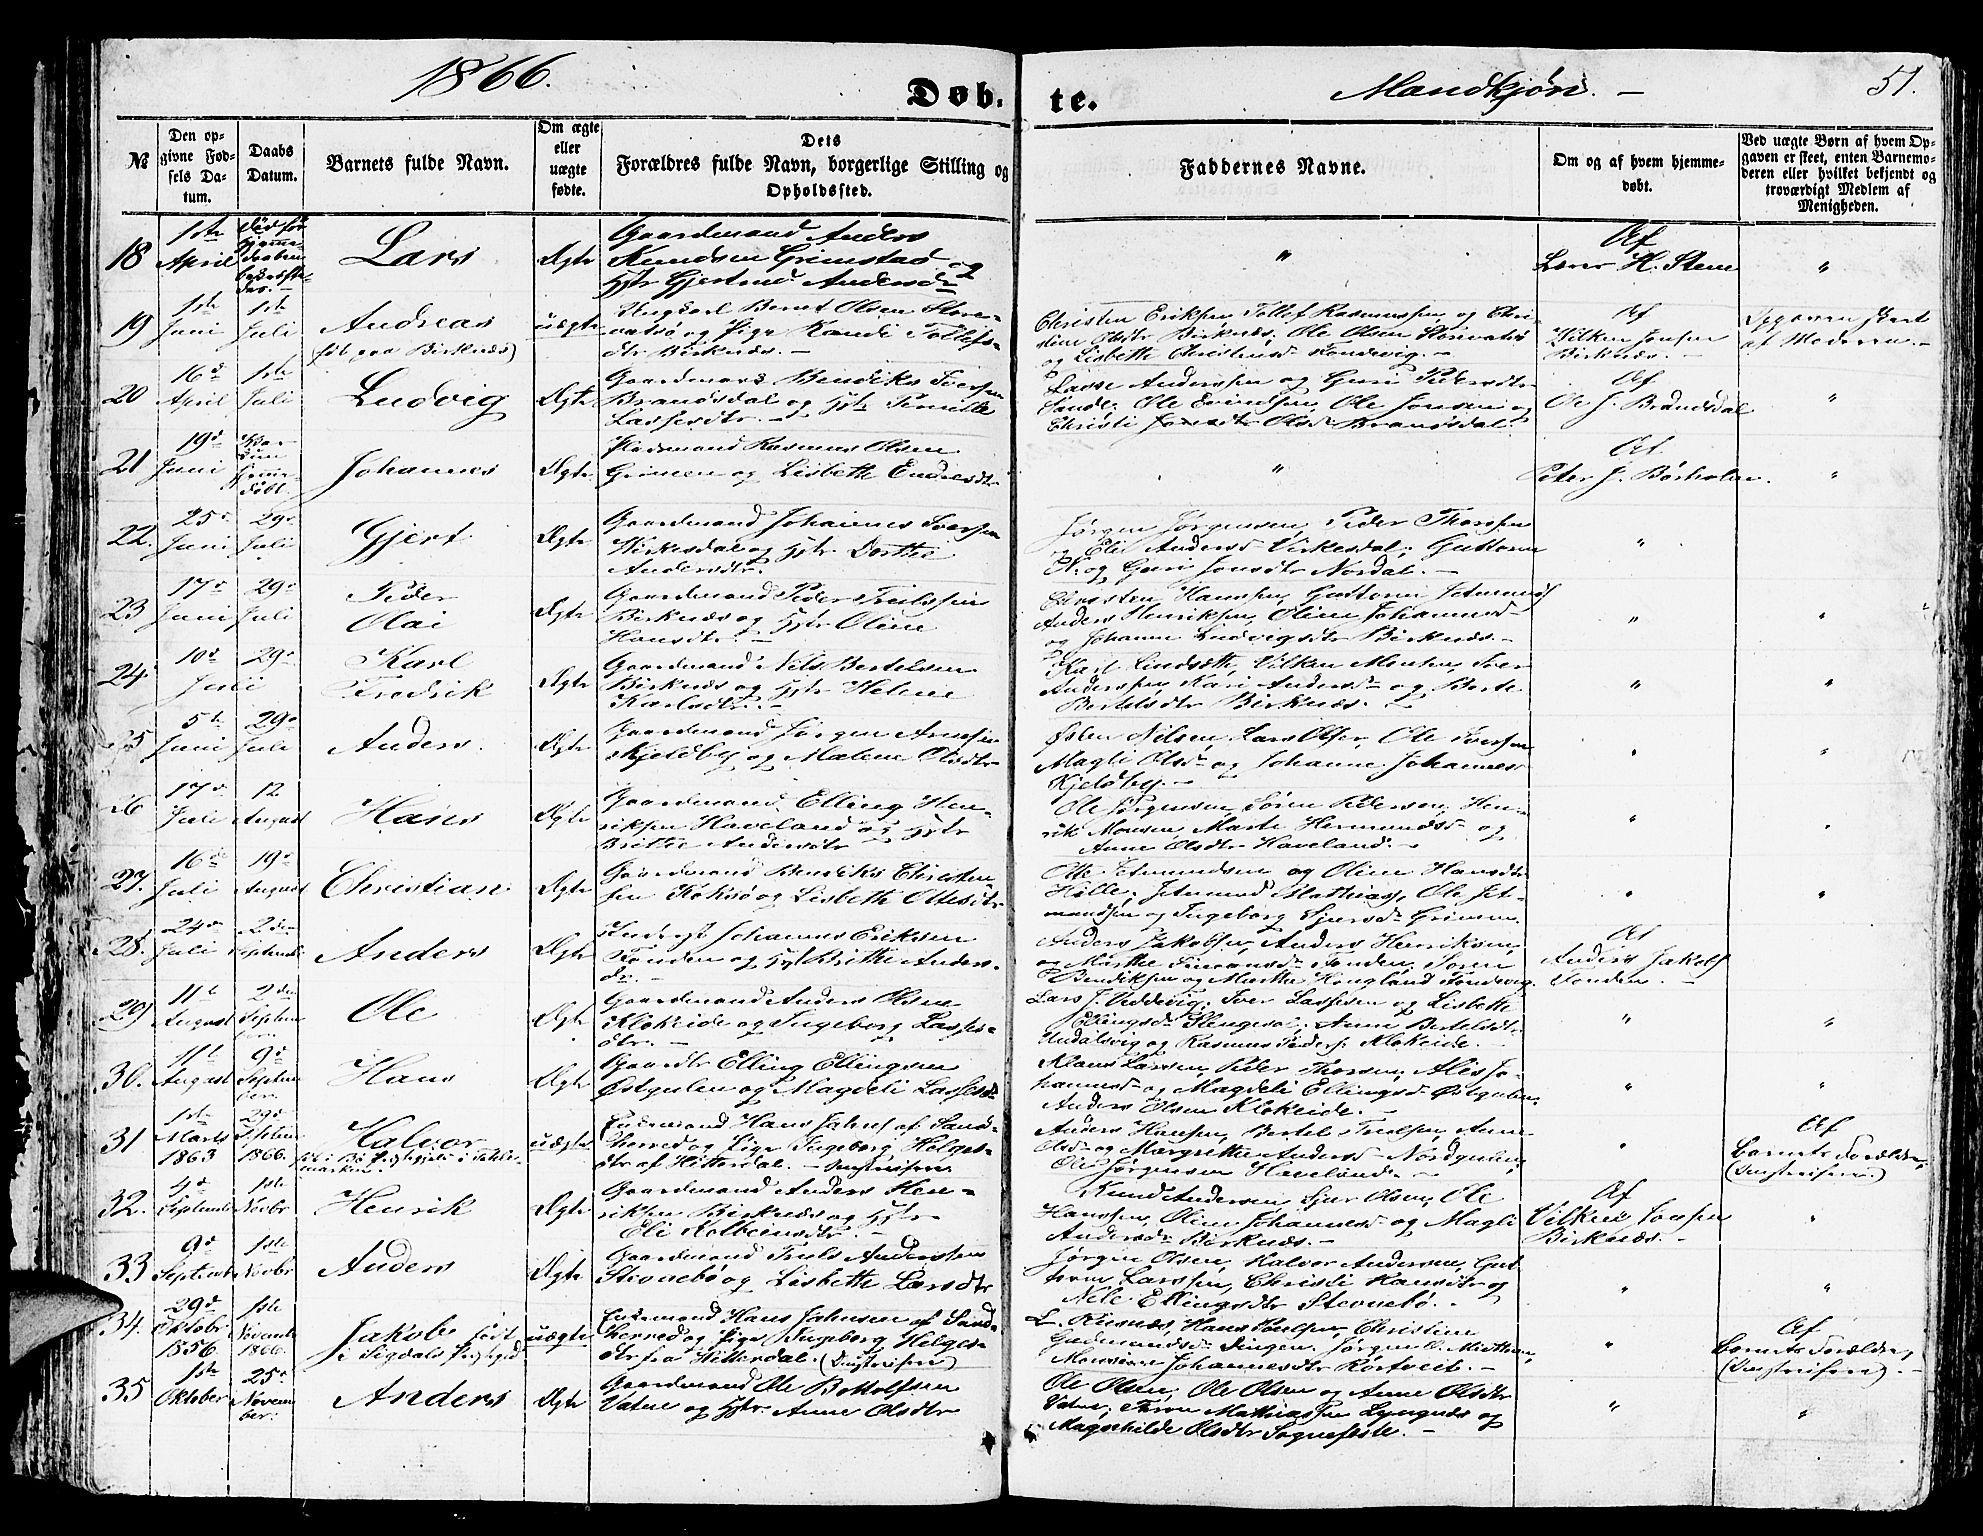 1866.
Døb.
te.
Mandkjøn. —
51.
№
Den op-
givne Fød-
sels Da-
tum.
Daabs
Datum.
Barnets fulde Navn.
Om ægte
eller
uægte
fødte.
Dets
Forældres fulde Navn, borgerlige Stilling og
Opholdssted.
Faddernes Navne.
Om og af hvem hjemme-
døbt.
Ved uægte Børn af hvem Op-
gaven er skeet, enten Barnemo-
deren eller hvilket bekjendt og
troværdigt Medlem af
Menigheden.
18
1ste
April
Lars
Ægte
Gaardmand Anders
Knudsen Grimstad og
Hstr Gjertrud Andersdtr
"
Af
Lærer H. Stene
"
19
1ste
Juni
1ste
Juli
Andreas
født paa Birknæs)
uægte
Ungkarl Bernt Olsen Store-
vatsø og Pige Randi Tollefs-
dtr Birknæs. —
Christen Eriksen, Tollef Rasmussen, og Chri-
stine Olsdtr Birknæs, Ole Olsen Storevatsø
og Lisbette Christensd Tondevig. —
Af
Vilken Jonsen
Birknæs. —
Opgaven skeet
af Moderen. —
20
16d
April
1ste
Juli
Ludvig
Ægte
Gaardmand Bendiks Iversen
Brandsdal og Hstr Pernille
Lassesdtr. —
Lasse Anderssen og Guri Pedersdtr
Sande, Ole Evindsen, Ole Jonsen og
Christi Olsd Brandsdal.
Af
Ole J. Brandsdal
"
21
19d
Juni
Johannes
Ægte
Pladsmand Rasmus Olsen
Grimen og Lisbette Endresdtr
"
Af
Peter J. Børholm.
"
22.
25d
Juni
29d
Juli
Gjert
Ægte
Gaardmand Johannes Iversen
Virkesdal og Hstr Dorthe
Andersdtr.
Jørgen Jørgensen, Peder Thorssen
og Eli Andersd Virkesdal; Guttorm
E. og Guri Jonsdtr Nordal. —
"
23
17d
Juni
29d
Juli
Peder
Olai
Ægte
Gaardmand Peder Troelssen
Birknæs og Hstr Oline
Hansdtr. —
Christen Hanssen, Guttorm Jetmunds
Anders Henriksen, Oline Johannesd
og Johanne Ludvigsdtr Birknæs. —
"
"
24.
10d
Juli
29d
Karl
Fredrik
Ægte
Gaardmand Nils Bertelsen
Birknæs og Hstr Helene
Karlsdtr. —
Karl Lindsæth, Vilken Monsen, Iver
Anderssen, Kari Andersd og Berte
Bertelsdtr Birknæs.
"
"
25
5te
Juni
29d
Juli
Anders
Ægte
Gaardmand Jørgen Arnesen
Kjeldby og Malene Olsdtr
Østen Nilsen, Lars Olsen, Ole Iversen
Magli Olsd og Johanne Johannesd
Kjeldby. —
"
"
26
17d
Juli
12
August
Hans
Ægte
Gaardmand Elling Hen-
riksen Haveland og Hstr
Britte Andersdtr
Ole Jørgensen, Søren Pedersen, Hen-
rik Monsen, Marte Hermundsd og
Anne Olsdtr Haveland. —
"
"
27.
16d
Juli
19d
August
Christian
Ægte
Gaardmand Bendiks Christen-
sen Røksø og Lisbeth Ottesdtr
Otte Jetmundsen og Oline Hansdtr
Hille, Jetmund Mathias, Ole Jet-
mundsen og Ingeborg Sjursd Grimen.
"
"
28.
24d
Juli
2den
September
Anders
Ægte
Johannes Eriksen
Tonden og Hstr Britte Anders-
dtr. —
Anders Jakobsen, Anders Henriksen,
og Marthe Simonsd Tonden, Søren
Bendiksen og Marthe Hougland Tondevig.
Af
Anders Jakobs
Tonden. —
29
11te
August
2den
Septem
ber
Ole
Ægte
Gaardmand Anders Olsen
Klokeide og Ingeborg Lasses-
dtr. —
Lars J. Veddevig, Iver Lassesen og Lisbette
Ellingsd Slengesol, Anne Bertelsdtr
Indalsvig og Rasmus Peders. Klokeide. —
"
"
30.
11te
August
9d
Septem
ber
Hans
Ægte
Gaardm Elling Ellingsen
Østgulen og Magdeli Lassesd
Klaus Larsen, Peder Thorsen, Alis Jo-
hannesd og Magdeli Ellingsd Østgulen,
Anders Olsen Klokeide. —
"
"
31
1ste
Marts
1863
29d
Septem
1866.
Halvor
uægte
Enkemand Hans Jahns. af Sand-
herred og Pige Ingeborg Helges-
dtr af Hitterdal. —
Anders Hansen, Bertel Troelsen, Anne
Olsd og Margrethe Andersd Nordgulen,
Ole Jørgensen Haveland. —
"
Af
Barnets Forældre,
32.
4d
Septemb
1ste
Novbr
Henrik
Ægte
Gaardmand Anders Hen-
riksen Birknæs og Hstr
Eli Kolbeinsdtr. —
Knud Andersen, Sjur Olsen, Ole
Hanssen, Oline Johannesd og Magli
Andersd Birknæs. —
Af
Vilken Jonsen
Birknæs. —
"
33
9d
Septemb
1ste
Novbr
Anders
Ægte
Gaardmand Troels Anderssen
Stevnebø og Lisbeth Larsdtr
Jørgen Olsen, Halvor Andersen, Gut
torm Larssen, Christi Hansdtr og
Nele Ellingsdtr Stevnebø. —
"
"
34.
29d
Oktobr
1856.
1ste
Novemb
1866.
Jakob født
i Sigdals Prstgjd
uægte
Enkemand Hans Jahnsen af Sand
herred og Pige Ingeborg Helges-
dtr fra Hitterdal.
L. Risnæs, Hans Poulsen, Christine
Gudmundsd Dingen, Jørgen
Johannesdtr Kortveit. —
"
Af
Barnets Forældre,
35
1ste
Oktober
25d
Novem
ber.
Anders
Ægte
Gaardmand Ole Bottolfsen
Vatne og Hstr. Anne Olsdtr
Ole Olsen, Ole Olsen og Anne Olsdtr
Vatne, Mathiassen Lyngnæs og
Magnhilde Olsdtr Sognefeste. —
"
"